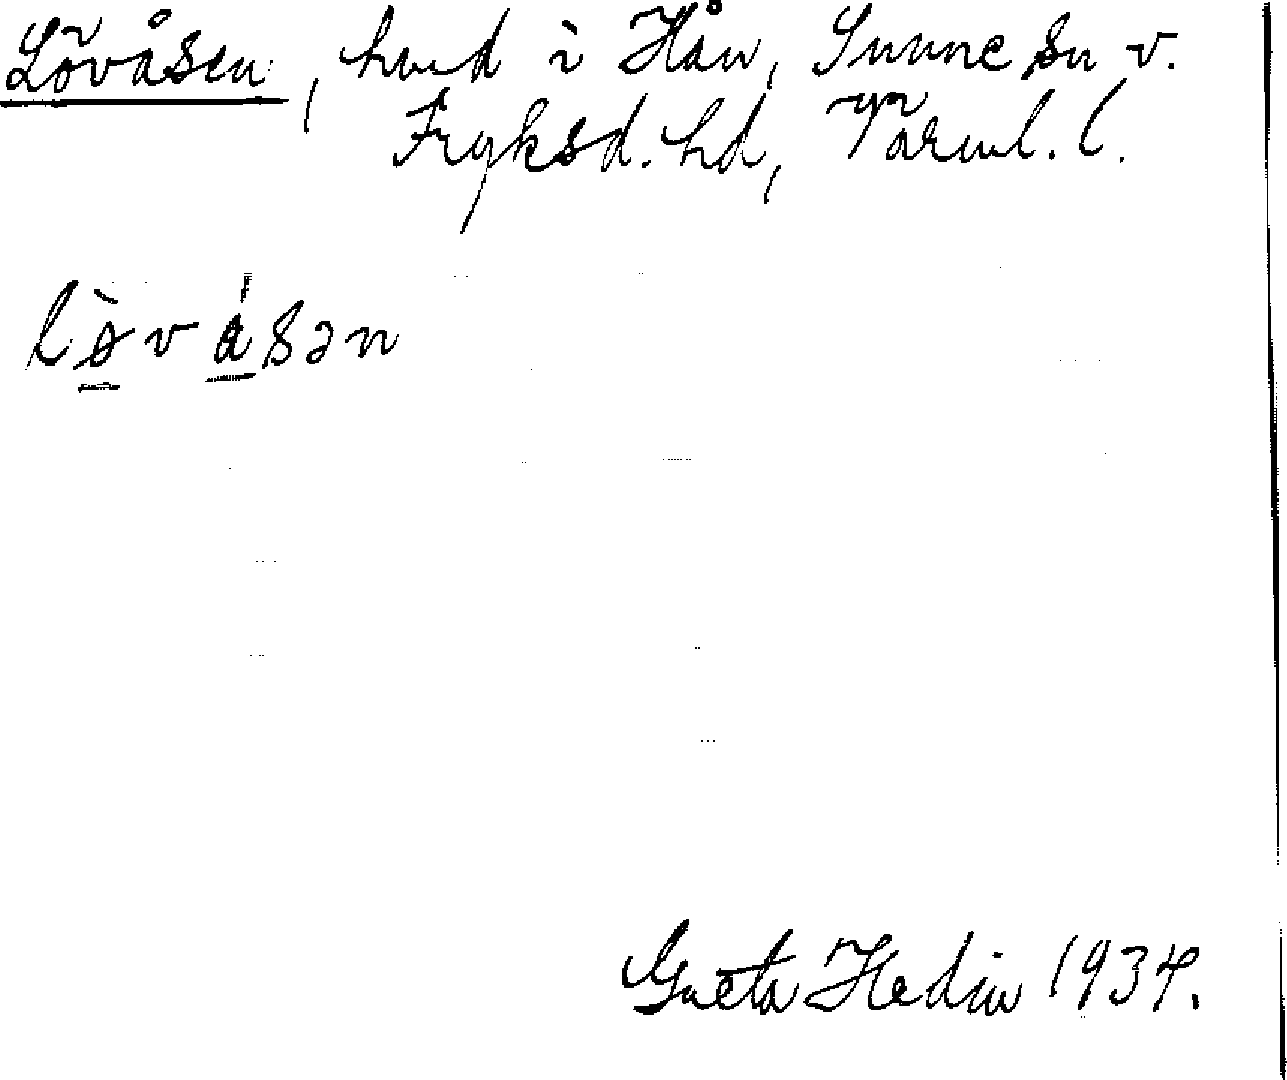 Lövåsen, hmd i Hån, Sunne sn v.
Fryksd. hd, Värml. l.
lø̀våsən
Greta Hedin 1934.